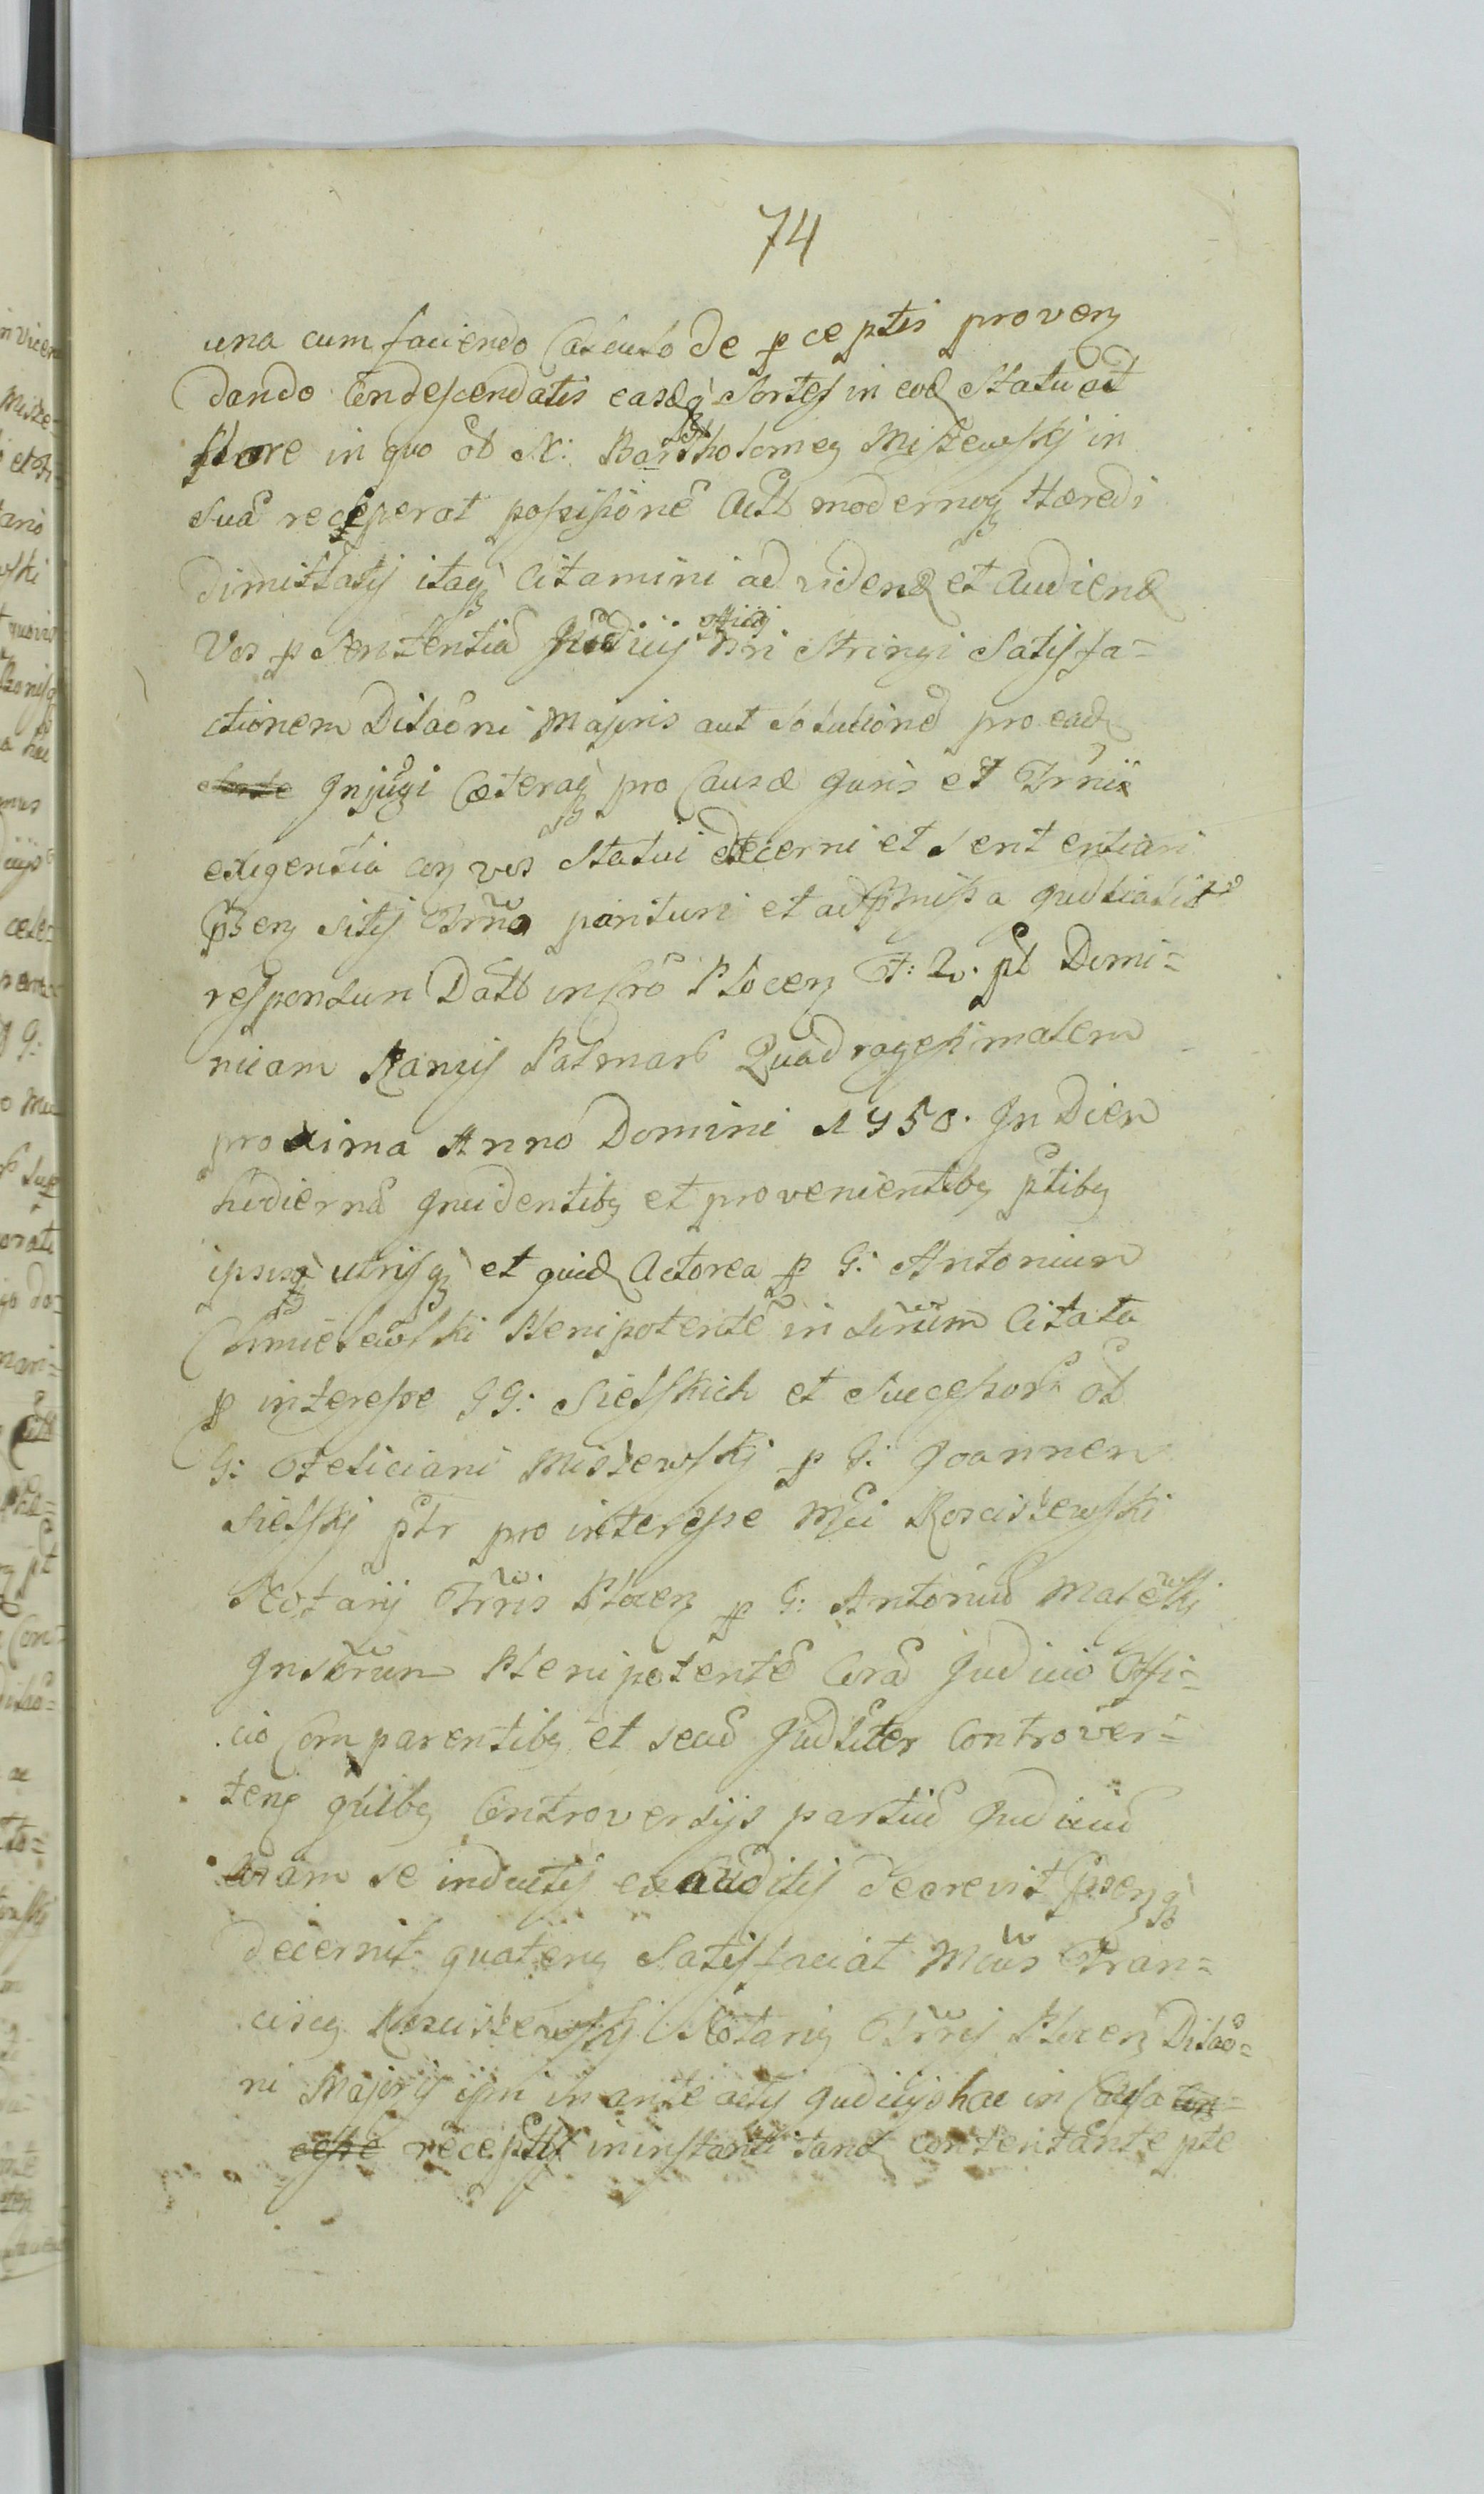 74
una cum faciendo Calculo de pceptis proven
dando Condescendatis easdq Sortes in eod Statu et
flore in quo ol N: Bartholomeg Miszewskj in
Suã receperat possessionẽ Actt modernog Hæredi
dimittatis itaq Citamini ad vidend et Audiend
Vos p Sententiã Judicij officij nri Stringi Satisfa-
ctionem Dilaõni Majoris aut Solutionẽ pro ead
Injugi Cæteraq pro Causæ Juris et Trnii
exigentia con vos Statui decerni et Sententiari
parituri et ad pmissa Judicialit
responsuri Datt in Cro Plocen F: 2. pt Domi-
nicam Ramis Palmar Quadragesimalem
proxima Anno Domini 1750. In Diem
hodiernã Incidentibg et provenientibg ptibg
ipsisq utrisq et quid Actorea p G: Antonium
Chmielewski Plenipotentẽ in Citata
p interesse GG: Sielskich et Successor ol
G: Feliciani Miszewskj p G: Joannem
Sielskj ptr pro interesse Mci Rosciszewski
Notarij Trris Plocen p G: Antoniũ Malewskj
Plenipotentẽ Corã Judicio Offi-
cio Comparentibg et secũ Judliter Controver-
ten quibg Controversijs partiũ Judiciũ
coram se inductis exauditis decrevit psenq
decernit quateng Satisfaciat Mcus Fran-
ciscg Rosciszewskj Notarig Trris Plocen Dilao-
ni Majoris ipsi in ante actis Judicijs hac in Causa con-
cesse receptis in instanti tand contentante pte